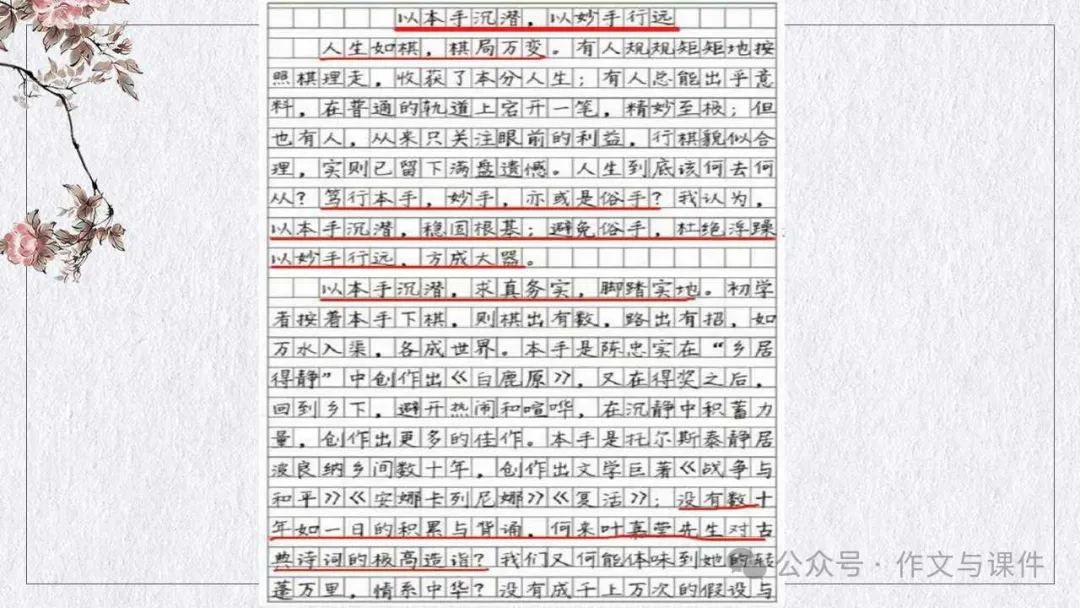 以本手沉潜，以妙手行远
人生如棋，棋局万变。有人规规矩矩地按
照棋理走，收获了本分人生；有人总能出乎意
料，在普通的轨道上宕开一笔，精妙至极；但
也有人，从来只关注眼前的利益，行棋貌似合
理，实则已留下满盘遗憾。人生到底该何去何
从？笃行本手，妙手，亦或是俗手？我认为，
以本手沉潜，稳固根基；避免俗手，杜绝浮躁
以妙手行远，方成大器。
以本手沉潜，求真务实，脚踏实地。初学
者按着本手下棋，则棋出有数，路出有招，如
万水入渠，各成世界。本手是陈忠实在“乡居
得静”中创作出《白鹿原》，又在得奖之后，
回到乡下，避开热闹和喧哗，在沉静中积蓄力
量，创作出更多的佳作。本手是托尔斯泰静居
波良纳乡间数十年，创作出文学巨著《战争与
和平》《安娜卡列尼娜》《复活》；没有数十
年如一日的积累与背诵，何来叶嘉莹先生对古
典诗词的极高造诣？我们又何能体味到她的转
蓬万里，情系中华？没有成千上万次的假设与
公众号·作文与课件